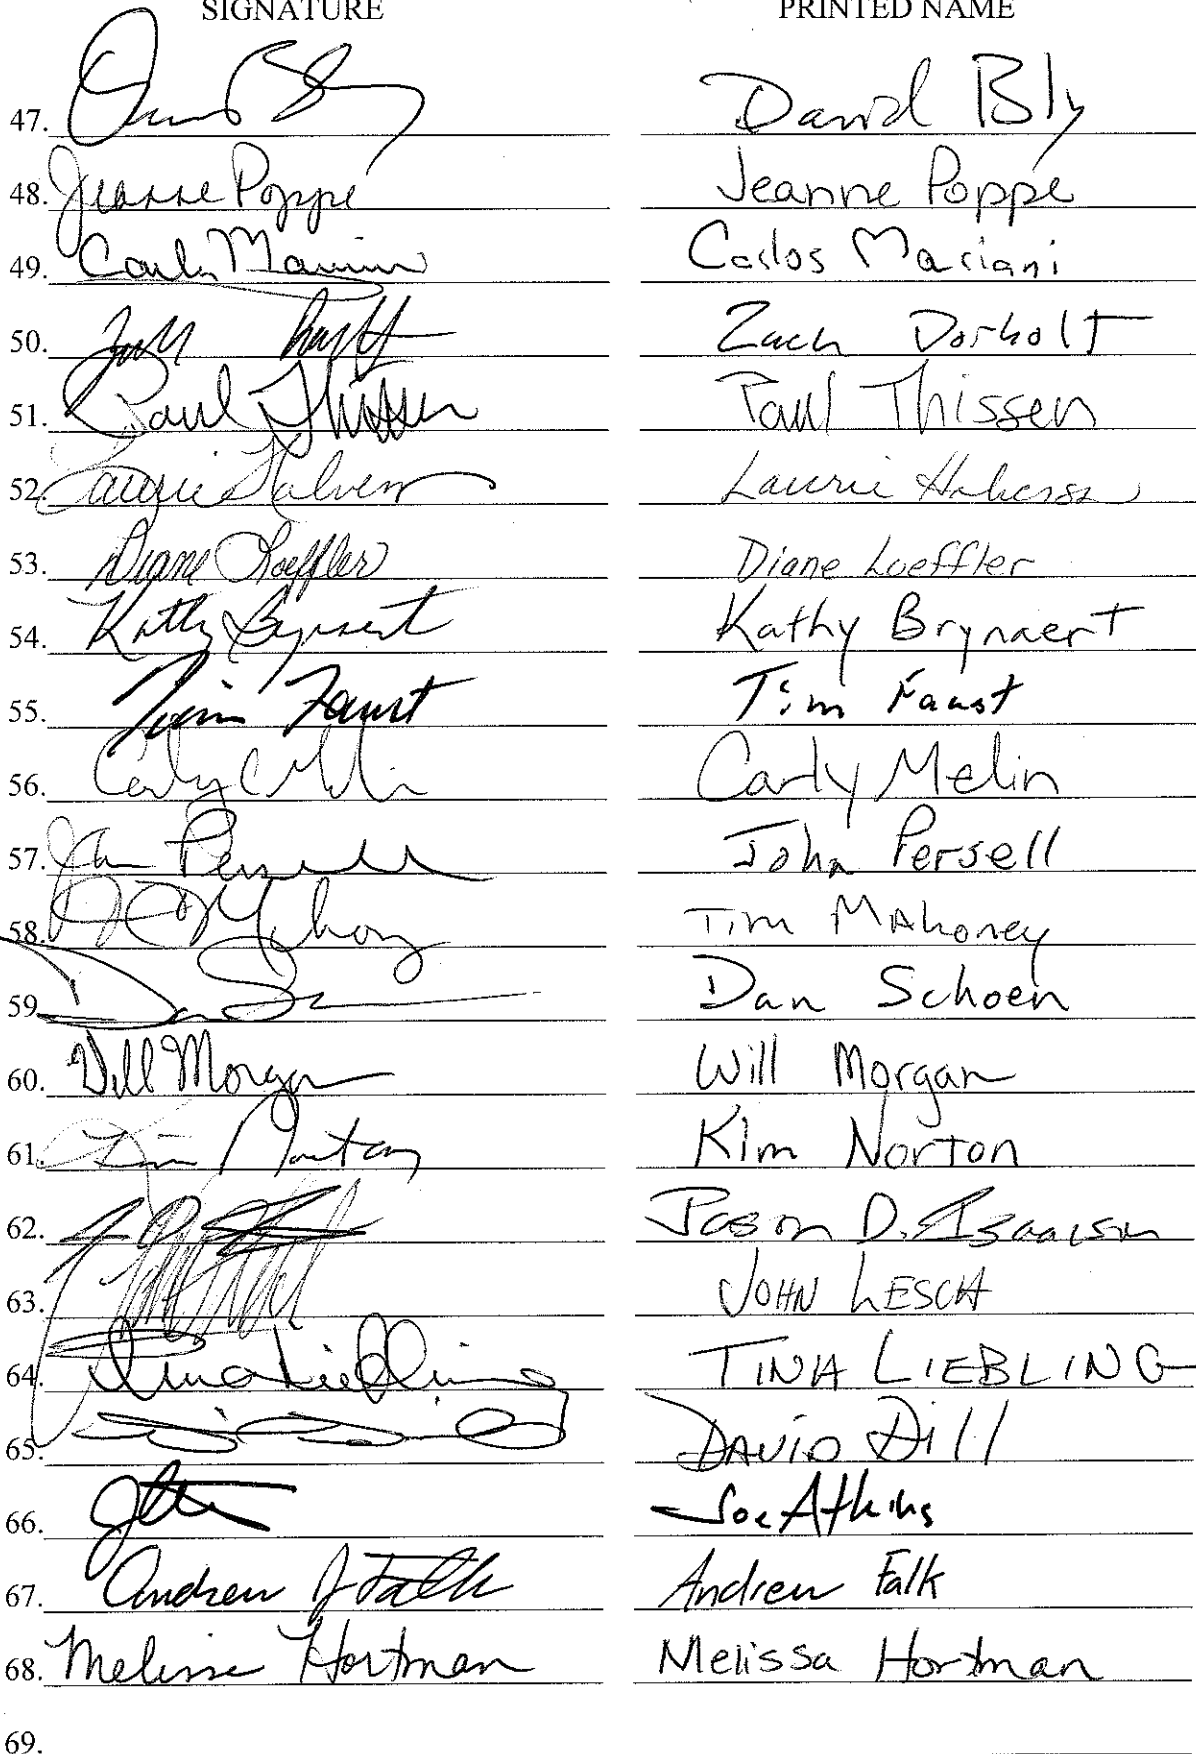 SIGNATURE PRINTED NAME
47. David Bly
48. Jeanne Poppe Jeanne Poppe
49. Carlos Mariani Carlos Mariani
50. Zach Dorholt
51. Paul Thissen Paul Thissen
52. Laurie Halverson Laurie Halverson
53. Diane Loeffler Diane Loeffler
54. Kathy Brynaert Kathy Brynaert
55. Tim Faust Tim Faust
56. Carly Melin Carly Melin
57. John Persell
58. Tim Mahoney
59. Dan Schoen
60. Will Morgan Will Morgan
61. Kim Norton Kim Norton
62. Jason D. Isaacson
63. JOHN LESCH
64. Tina Liebling TINA LIEBLING
65. DAVID Dill
66. Joe Atkins
67. Andrew J Falk Andrew Falk
68. Melissa Hortman Melissa Hortman
69.